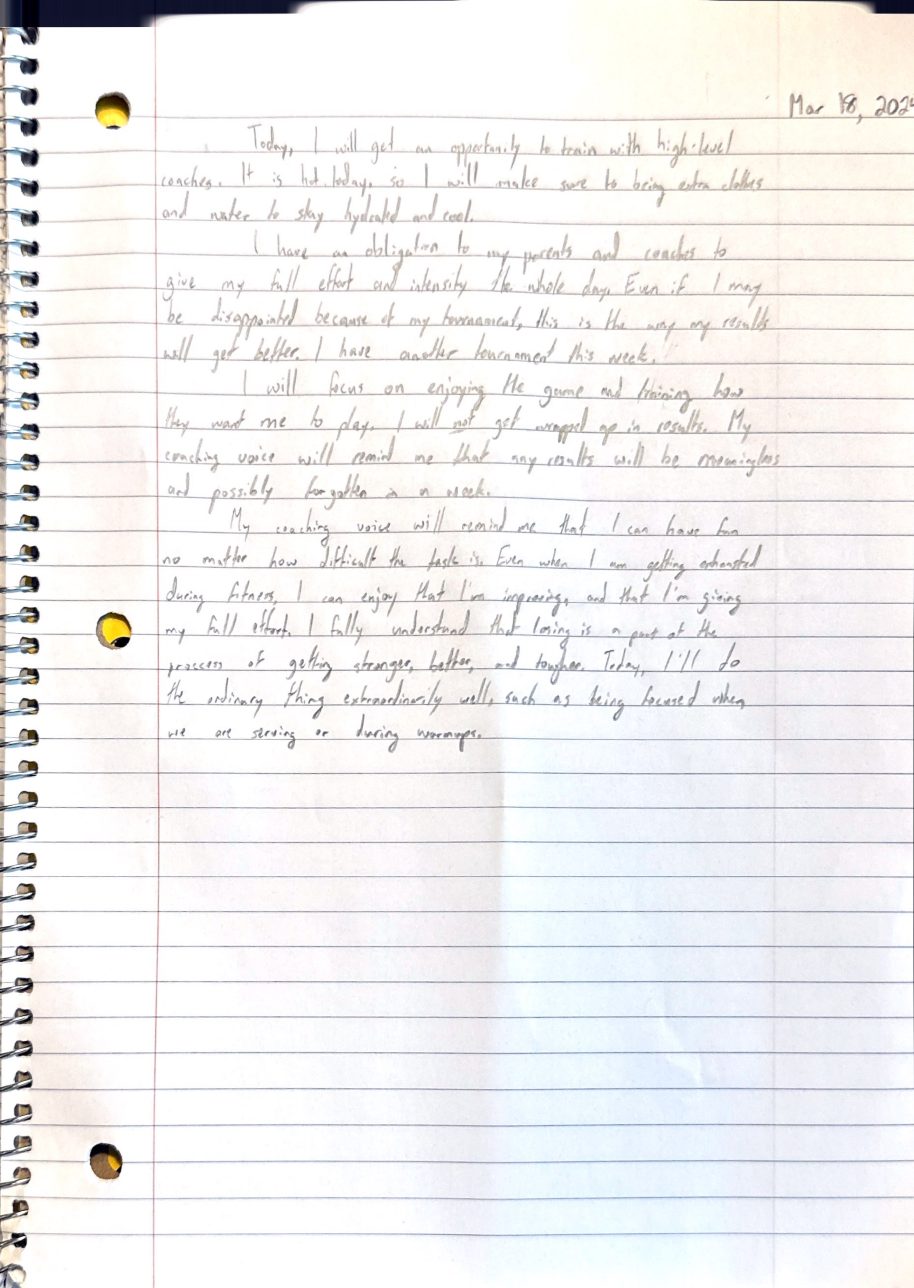 Mar 18, 2024
Today, I will get an opportunity to train with high-level
coaches. It is hot today, so I will make sure to being extra clothes
and water to stay hydrated and cool.
I have an obligation to my parents and coaches to
give my full effort and intensity the whole day. Even if I may
be disappointed because of my tournament, this is the way my results
will get better. I have another tournament this week.
I will focus on enjoying the game and training how
they want me to play. I will not get wrapped up in results. My
coaching voice will remind me that any results will be meaningless
and possibly forgotten in a week.
My coaching voice will remind me that I can have fun
no matter how difficult the task is. Even when I am getting exhausted
during fitness, I can enjoy that I'm improving, and that I'm giving
my full effort. I fully understand that losing is a part of the
process of getting stronger, better, and tougher. Today, I'll do
the ordinary thing extraordinarily well, such as being focused when
we are serving or during warmups.